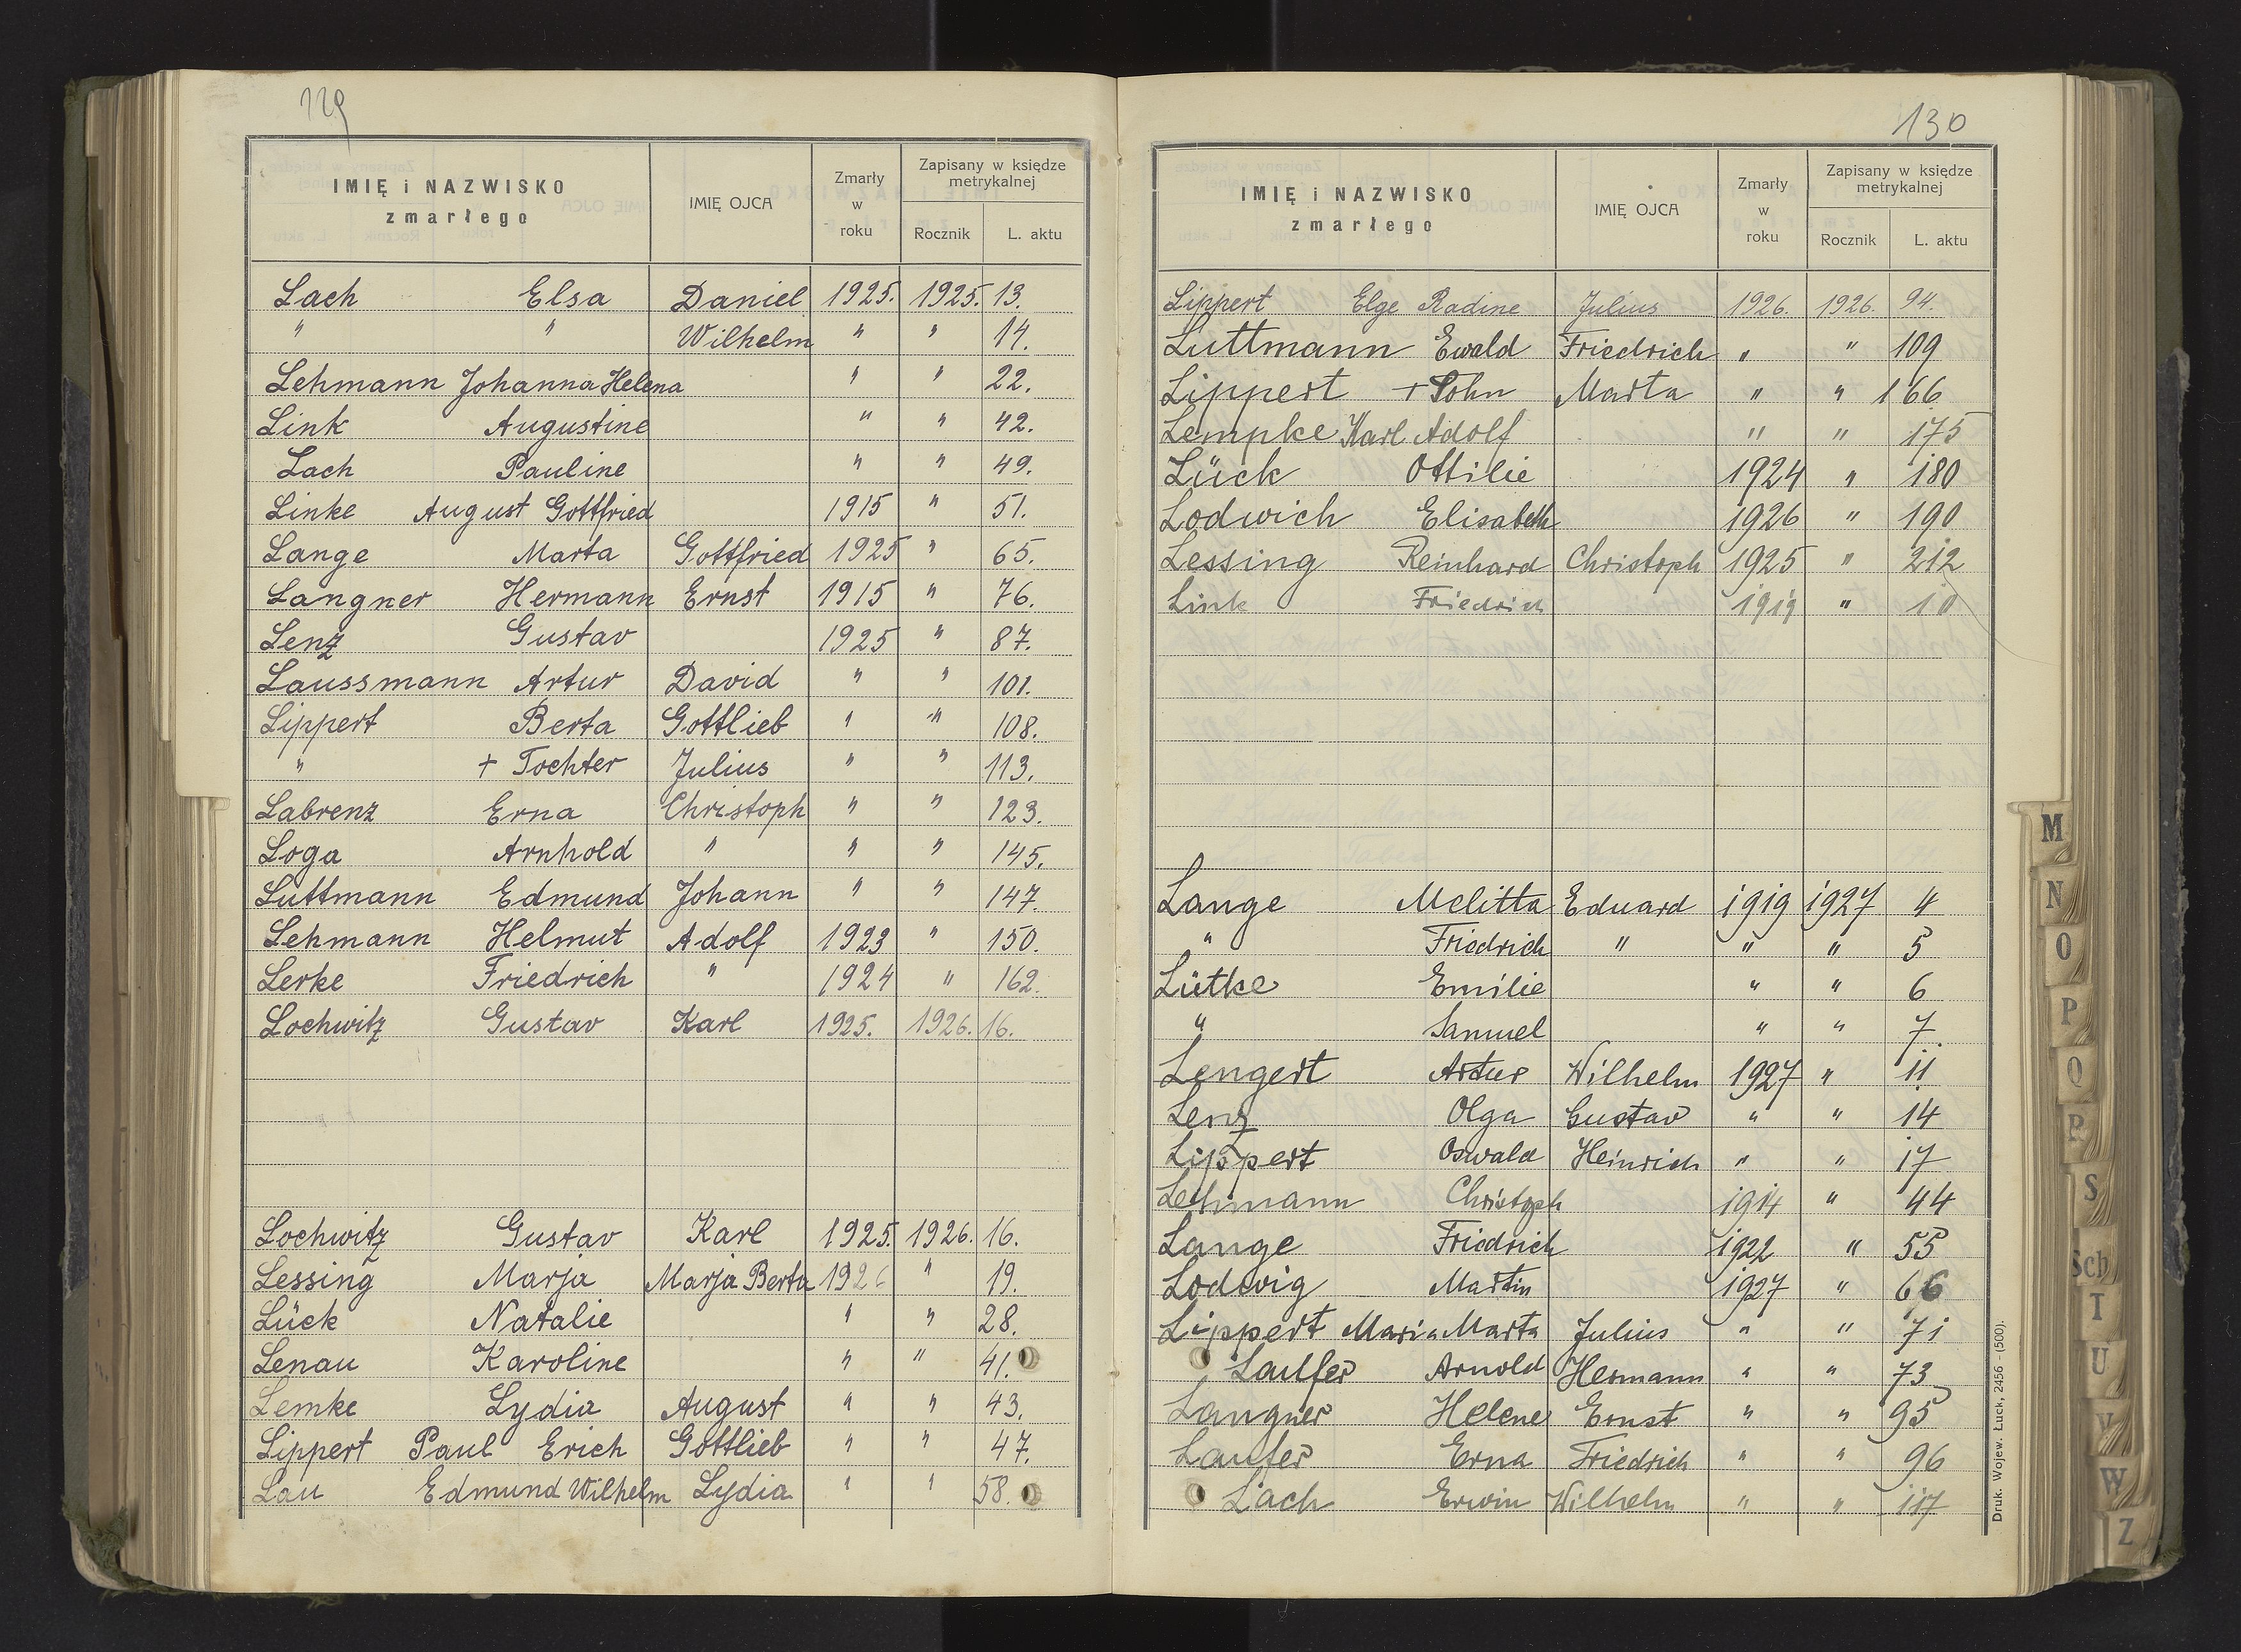 129
IMIĘ i NAZWISKO
zmarłego
IMIĘ OJCA
Zmarły
w
roku
Zapisany w księdze
metrykalnej
Rocznik
L. aktu
Lach Elsa Daniel 1925. 1925. 13.
" " Wilhelm " " 14.
Lehmann Johanna Helena " " 22.
Link Augustine " " 42.
Lach Pauline " " 49.
Linke August Gottfried 1915 " 51.
Lange Marta Gottfried 1925 " 65.
Langner Hermann Ernst 1915 " 76.
Lenz Gustav 1925 " 87.
Laussmann Artur David " " 101.
Lippert Berta Gottlieb " " 108.
" + Tochter Julius " " 113.
Labrenz Erna Christoph " " 123.
Loga Arnhold " " " 145.
Luttmann Edmund Johann " " 147.
Lehmann Helmut Adolf 1923 " 150.
Lerke Friedrich " 1924 " 162.
Lochwitz Gustav Karl 1925. 1926. 16.
Lochwitz Gustav Karl 1925. 1926. 16.
Lessing Marja Marja Berta 1926 " 19.
Lück Natalie " " 28.
Lenau Karoline " " 41.
Lemke Lydia August " " 43.
Lippert Paul Erich Gottlieb " " 47.
Lau Edmund Wilhelm Lydia " " 58.
130
IMIĘ i NAZWISKO
zmarłego
IMIĘ OJCA
Zmarły
w
roku
Zapisany w księdze
metrykalnej
Rocznik
L. aktu
Lippert Elge Radine Julius 1926. 1926. 94.
Luttmann Ewald Friedrich " " 109
Lippert + Sohn Marta " " 166
Lempke Karl Adolf " " 175
Lück Ottilie 1924 " 180
Lodwich Elisabeth 1926 " 190
Lessing Reinhard Christoph 1925 " 212
Link Friedrich 1919 " 10
Lange Melitta Eduard 1919 1927 4
" Friedrich " " " 5
Lütke Emilie " " 6
" Samuel " " 7
Lengert Artur Wilhelm 1927 " 11
Lenz Olga Gustav " " 14
Lippert Oswald Heinrich " " 17
Lehmann Christoph 1914 " 44
Lange Friedrich 1922 " 55
Lodwig Martin 1927 " 66
Lippert Maria Marta Julius " " 71
Laufer Arnold Hermann " " 73
Langner Helene Ernst " " 95
Laufer Erna Friedrich " " 96
Lach Erwin Wilhelm " " 117
Druk. Wojew. Łuck, 2456 - (500).
M
N
O
P
Q
R
S
Sch
T
U
V
W
Z